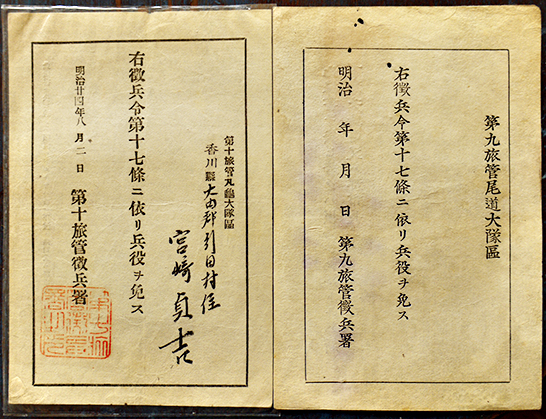 第九旅管尾道大隊區
右徵兵令第十七條ニ依リ兵役ヲ免ス
明治 年 月 日 第九旅管徵兵署
第十旅管丸龜大隊區
香川縣大内郡引田村住
宮崎貞吉
右徵兵令第十七條ニ依リ兵役ヲ免ス
明治廿四年八月二日 第十旅管徵兵署